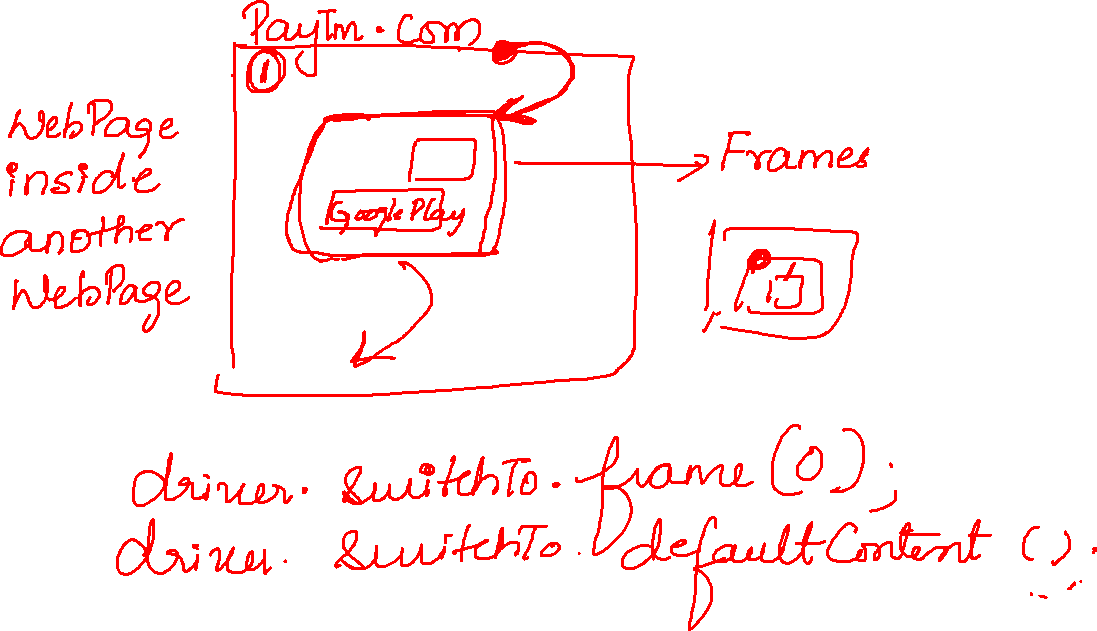 PayTm.com
1
WebPage
inside
another
WebPage
Google Play
Frames
driver.switchTo.frame(0);
driver.switchTo.defaultContent().